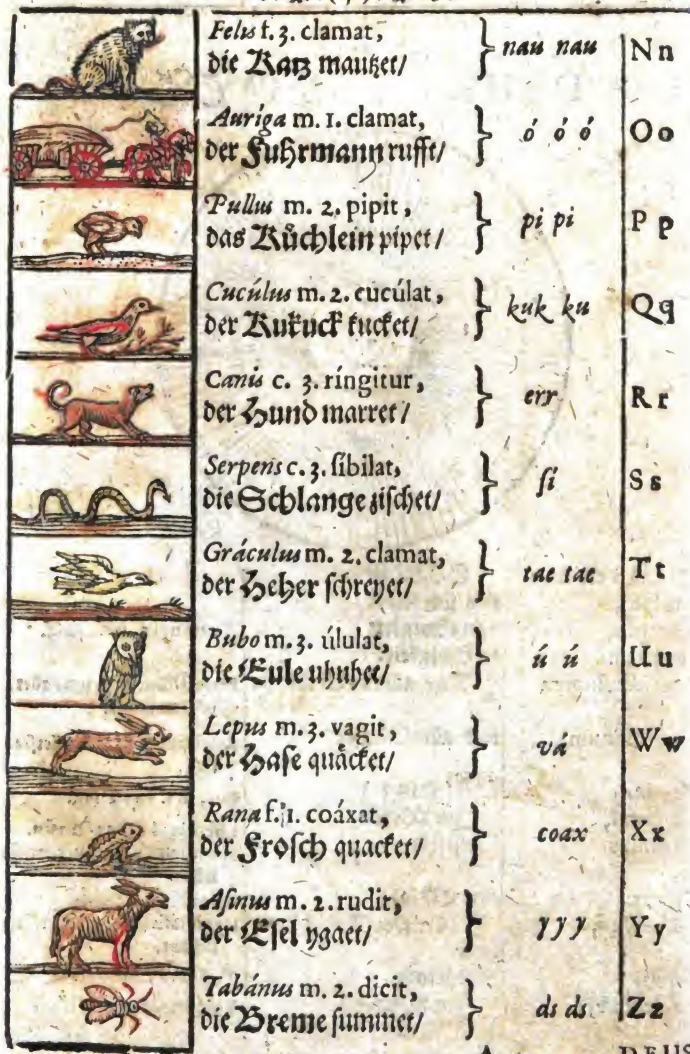 Felis f. 3. clamat,
die Katz mautzet/ } nau nau Nn
Auríga m. 1. clamat,
der Fuhrmann rufft/ } ó ó ó Oo
Pullus m. 2. pipit,
das Küchlein pipet/ } pi pi Pp
Cucúlus m. 2. cucúlat,
der Kukuck kucket/ } kuk ku Qq
Canis c. 3. ríngitur,
der Hund marret/ } err Rr
Serpens c. 3. síbilat,
die Schlange zischet/ } si Ss
Gráculus m. 2. clamat,
der Heher schreyet/ } tae tae Tt
Bubo m. 3. úlulat,
die Eule uhuhet/ } ú ú Uu
Lepus m. 3. vagit,
der Hase quäcket/ } vá Ww
Rana f. 1. coáxat,
der Frosch quacket/ } coax Xx
Asinus m. 2. rudit,
der Esel ygaet/ } y y y Yy
Tabánus m. 2. dicit,
die Breme summet/ } ds ds Zz
DEUS